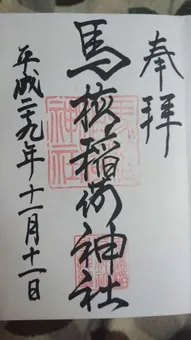 奉拝
馬橋稲荷神社
平成二九年十一月十一日